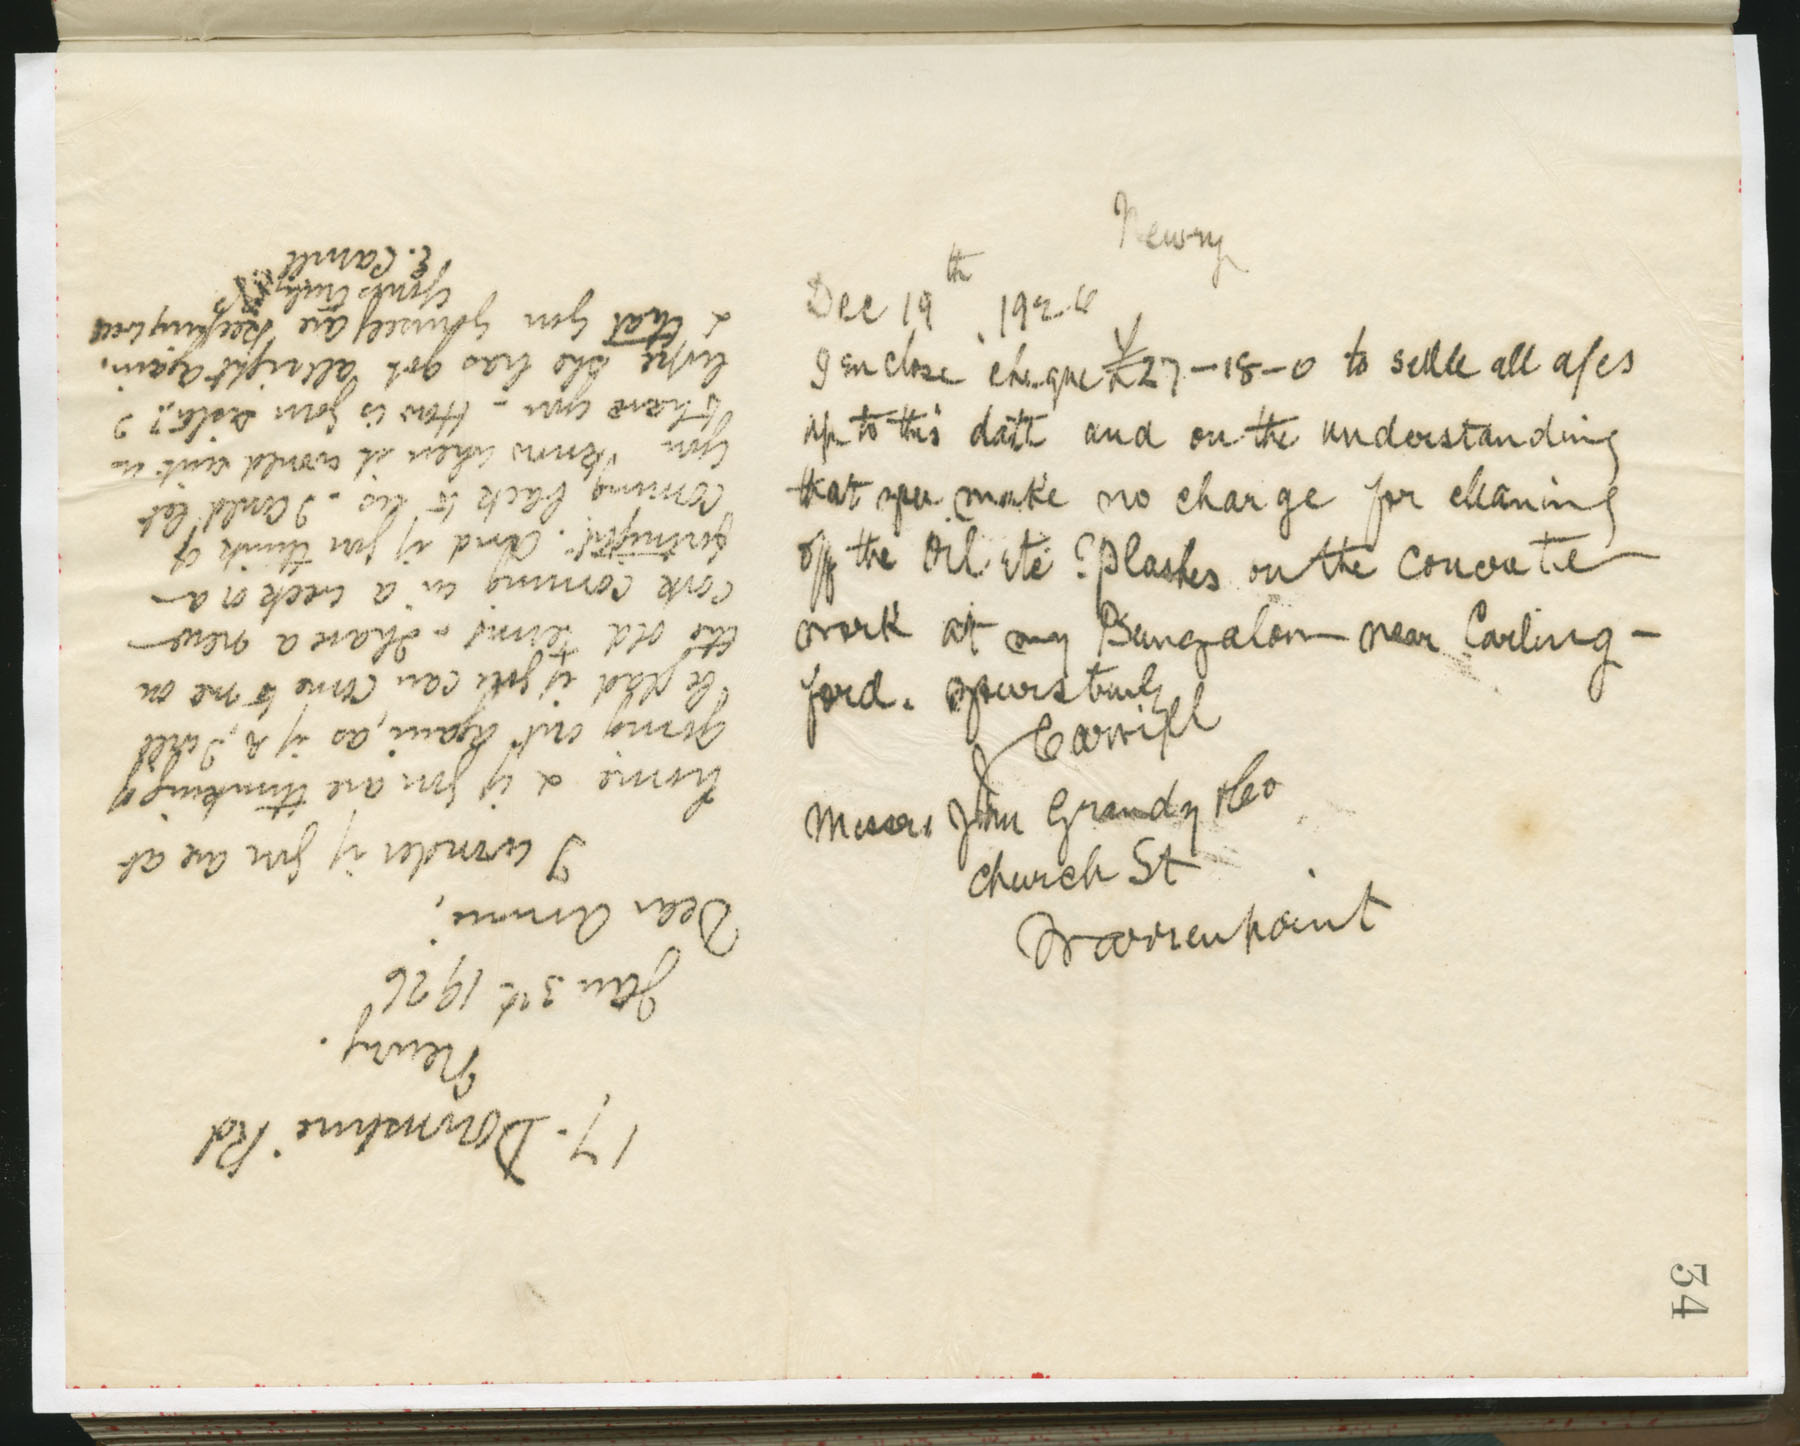 Newry
Dec 19th 192
I enclose cheque £27-18-0 to settle all a/cs
up to this date and on the understanding
that you make no charge for cleaning
off the Oil etc Splashes on the concrete
work at my Bungalow near Carling-
ford. yours truly
J Carvill
Messrs John Grandy & Co
Church St
Warrenpoint
34
17- Downshire Rd
Newry.
Jan 3rd 1926
Dear Annie,
I wonder if you are at
home & if you are thinking of
going out again, as if so, I will
be glad if you can come to me on
the old terms - I have a new
cook coming in a week or a
fortnight. And if you think of
coming back to us - I could let
you know when it would suit us
to have you - How is your sister?
hope she has got allright again,
& that you yourself are keeping well
Yours truly
E. Carvill